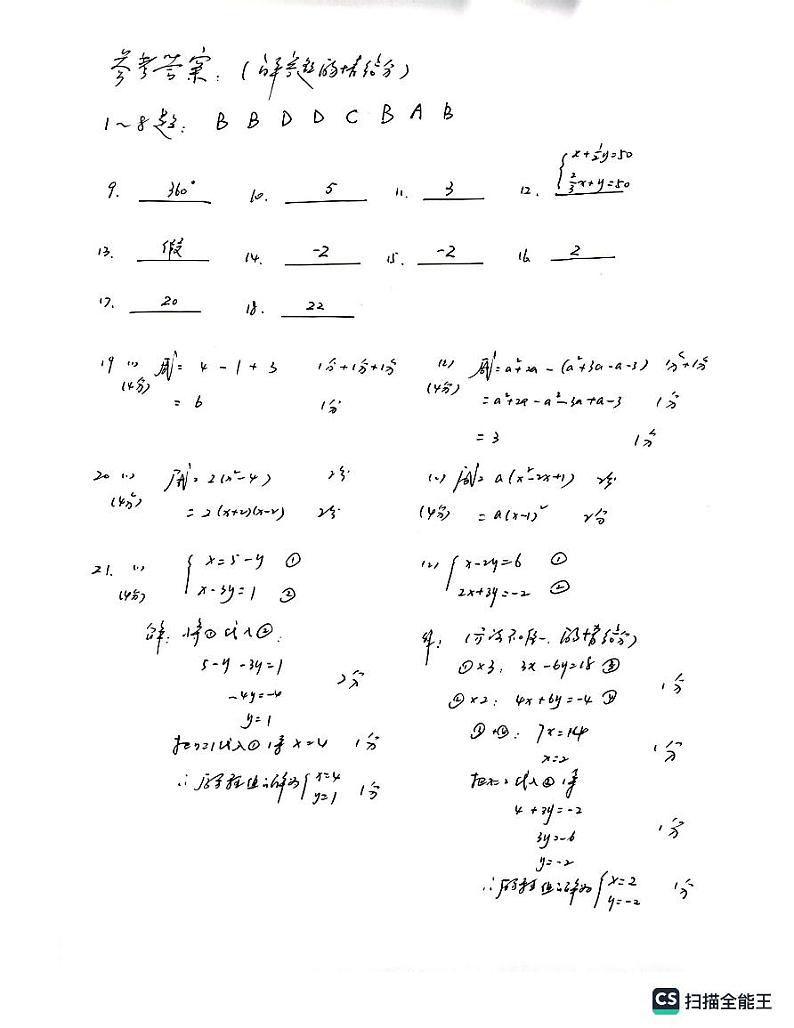 参考答案：（解答题酌情给分）
1～8题： B B D D C B A B
9. 360° 10. 5 11. 3 12. { x+½y=50
⅔x+y=50
13. 假 14. -2 15. -2 16. 2
17. 20 18. 22
19 (1) 原式= 4-1+3 1分+1分+1分
(4分)
= 6 1分
(2) 原式=a²+2a-(a²+3a-a-3) 1分+1分
(4分)
=a²+2a-a²-3a+a-3 1分
= 3 1分
20 (1) 原式=2(x²-4) 2分
(4分)
=2(x+2)(x-2) 2分
(2) 原式=a(x²-2x+1) 2分
(4分) =a(x-1)² 2分
21. (1) { x=5-y ①
(4分) x-3y=1 ②
解：将①代入②：
5-y-3y=1
-4y=-4 2分
y=1
把y=1代入①得 x=4 1分
∴原方程组的解为{ x=4
y=1 1分
(2) { x-2y=6 ①
2x+3y=-2 ②
解：(方法不唯一，酌情给分)
①×3：3x-6y=18 ③
②×2：4x+6y=-4 ④ 1分
③+④：7x=14
x=2 1分
把x=2代入②得
4+3y=-2
3y=-6 1分
y=-2
∴原方程组的解为{ x=2
y=-2 1分
CS 扫描全能王